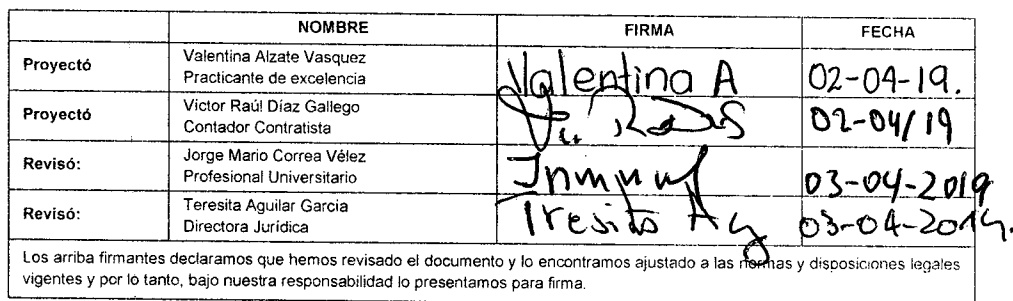 NOMBRE FIRMA FECHA
Proyectó Valentina Alzate Vasquez
Practicante de excelencia Valentina A 02-04-19.
Proyectó Victor Raúl Díaz Gallego
Contador Contratista 02-04/19
Revisó: Jorge Mario Correa Vélez
Profesional Universitario 03-04-2019
Revisó: Teresita Aguilar Garcia
Directora Jurídica Tresita Ag 03-04-2019.
Los arriba firmantes declaramos que hemos revisado el documento y lo encontramos ajustado a las normas y disposiciones legales
vigentes y por lo tanto, bajo nuestra responsabilidad lo presentamos para firma.